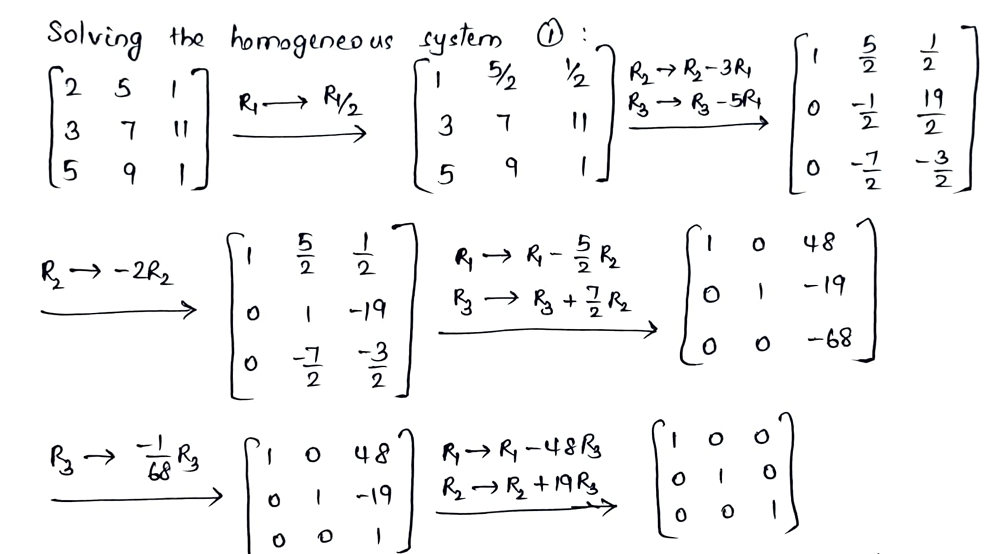 Solving the homogeneous system ① :
[2 5 1; 3 7 11; 5 9 1] R₁ → R₁/2 [1 5/2 1/2; 3 7 11; 5 9 1] R₂ → R₂-3R₁ R₃ → R₃-5R₁ [1 5/2 1/2; 0 -1/2 19/2; 0 -7/2 -3/2]
R₂ → -2R₂ [1 5/2 1/2; 0 1 -19; 0 -7/2 -3/2] R₁ → R₁ - 5/2 R₂ R₃ → R₃ + 7/2 R₂ [1 0 48; 0 1 -19; 0 0 -68]
R₃ → -1/68 R₃ [1 0 48; 0 1 -19; 0 0 1] R₁ → R₁-48R₃ R₂ → R₂+19R₃ [1 0 0; 0 1 0; 0 0 1]